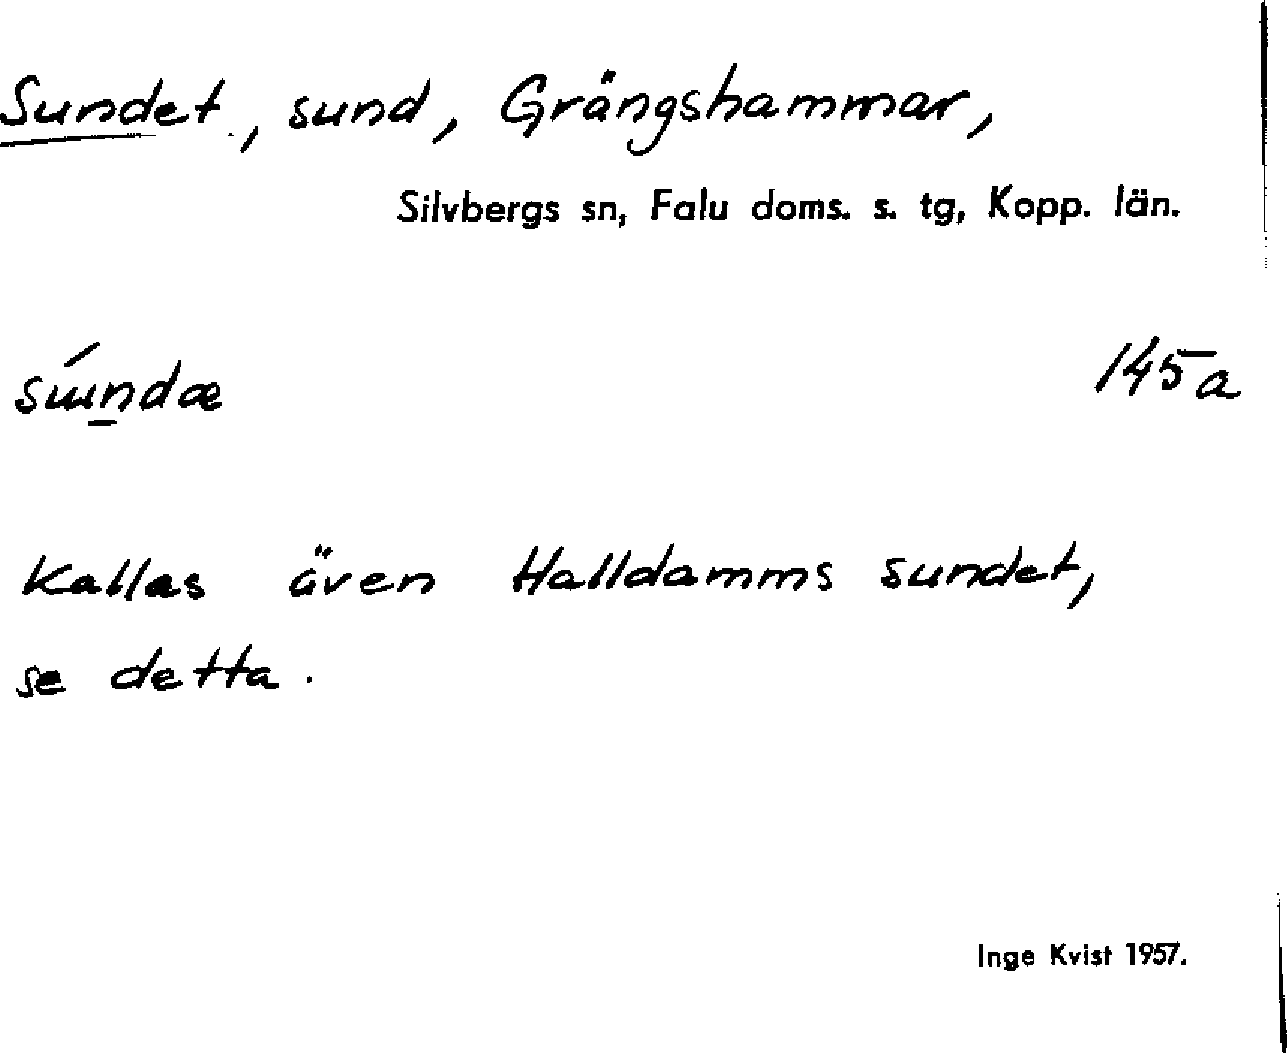 Sundet, sund, Grängshammar,
Silvbergs sn, Falu doms. s. tg, Kopp. län.
sɯ́n̠dæ 145a
Kallas även Halldamms sundet,
se detta.
Inge Kvist 1957.